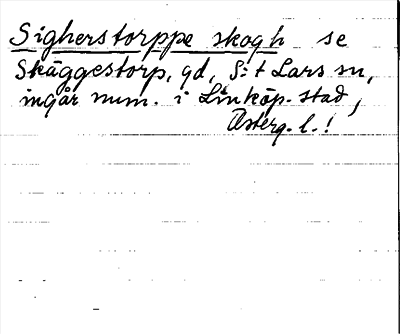 Sigherstorppe skogh se
Skäggestorp, gd, S:t Lars sn,
ingår num. i Linköp. stad,
Österg. l.!